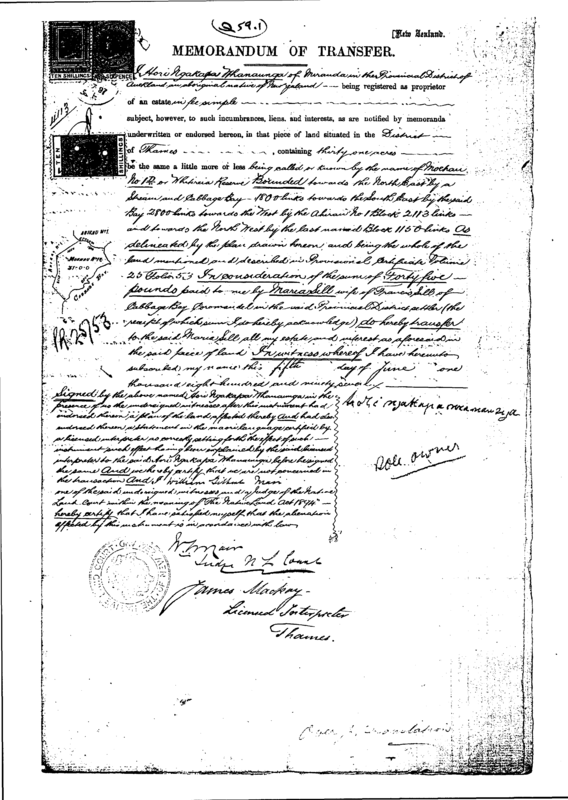 (Q 59.1)
[New Zealand.
MEMORANDUM OF TRANSFER.
TEN SHILLINGS
I Hori Ngakapa Whanaunga of Miranda in the Provincial District of
Auckland an aboriginal native of New Zealand — being registered as proprietor
of an estate in fee simple
subject, however, to such incumbrances, liens, and interests, as are notified by memoranda
underwritten or endorsed hereon, in that piece of land situated in the District
of Thames , containing thirty one acres
be the same a little more or less being called or known by the name of
No 1D or Reserve Bounded towards the North East by a
Stream and Cabbage Bay 1800 links towards the South East by the said
Bay 2800 links towards the West by the No 1 Block 2113 links —
and towards the North West by the last named Block 1150 links As
delineated by the plan drawn hereon and being the whole of the
land mentioned and described in Provisional Certificate Volume
25 Folio 53 In consideration of the sum of Forty five
pounds paid to me by Maria Sell wife of Francis Sell of
Cabbage Bay Coromandel in the said Provincial District settler (the
receipt of which sum I do hereby acknowledge) do hereby transfer
to the said Maria Sell all my estate and interest as aforesaid in
the said piece of land In witness whereof I have hereunto
subscribed my name this fifth day of June one
thousand eight hundred and ninety seven
PR 25/53
Signed by the above named Hori Ngakapa Whanaunga in the
presence of us the undersigned witnesses after this instrument had
indorsed thereon a plan of the land affected thereby And had also
indorsed thereon a statement in the maori language certified by
a licensed interpreter as correctly setting forth the effect of such
instrument such effect having been explained by the said licensed
interpreter to the said Hori Ngakapa Whanaunga before he signed
the same And we hereby certify that we are not concerned in
the transaction And I William Gilbert Mair
one of the said undersigned witnesses and a Judge of the Native
Land Court within the meaning of The Native Land Act 1894
hereby certify that I have satisfied myself that the alienation
effected by this instrument is in accordance with law
Hori ngakapa
Sole owner
W G Mair
Judge N L Court
James Mackay
Licensed Interpreter
Thames.
translation